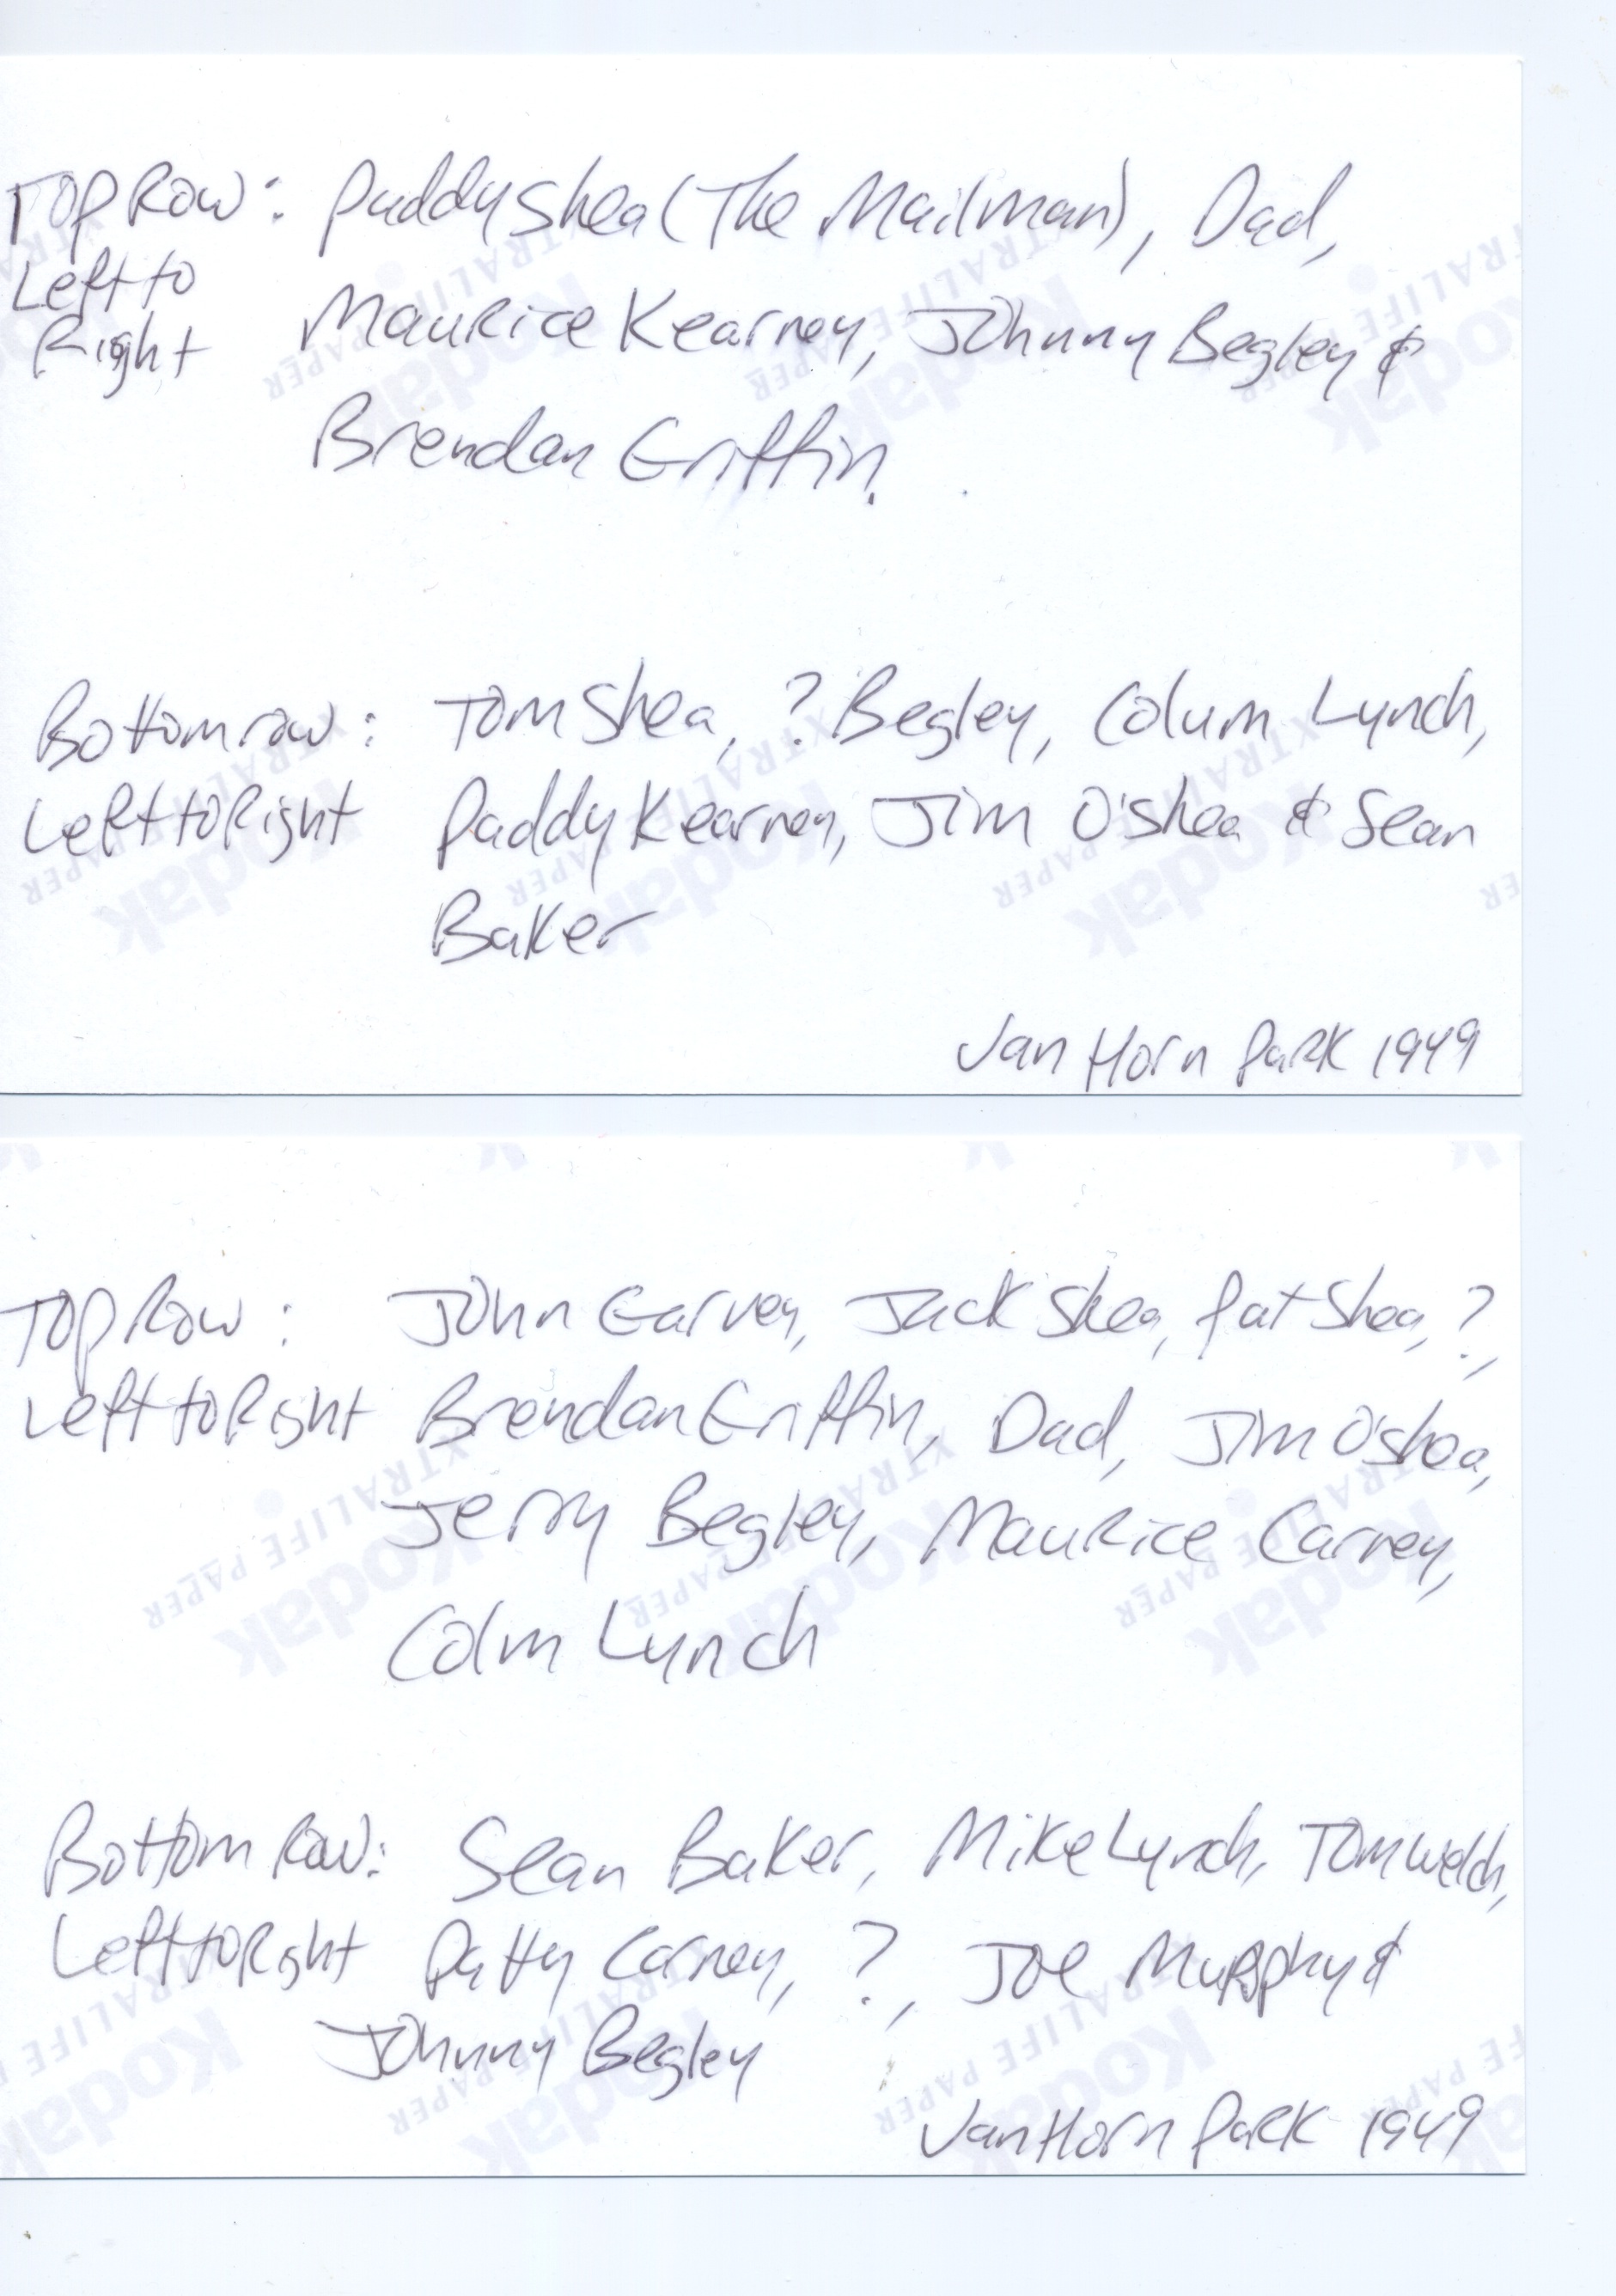 Top Row: Paddy Shea (The Mailman), Dad,
Left to
Right Maurice Kearney, Johnny Begley &
Brendan Griffin.
Bottom row: Tom Shea, ? Begley, Colum Lynch,
Left to Right Paddy Kearney, Jim O'Shea & Sean
Baker
Van Horn Park 1949
Top Row: John Garvey, Jack Shea, Pat Shea, ?,
Left to Right Brendan Griffin, Dad, Jim O'Shea,
Jerry Begley, Maurice Carney,
Colm Lynch
Bottom Row: Sean Baker, Mike Lynch, Tom Welch,
Left to Right Patty Carney, ?, Joe Murphy &
Johnny Begley
Van Horn Park 1949
Kodak
XTRALIFE PAPER